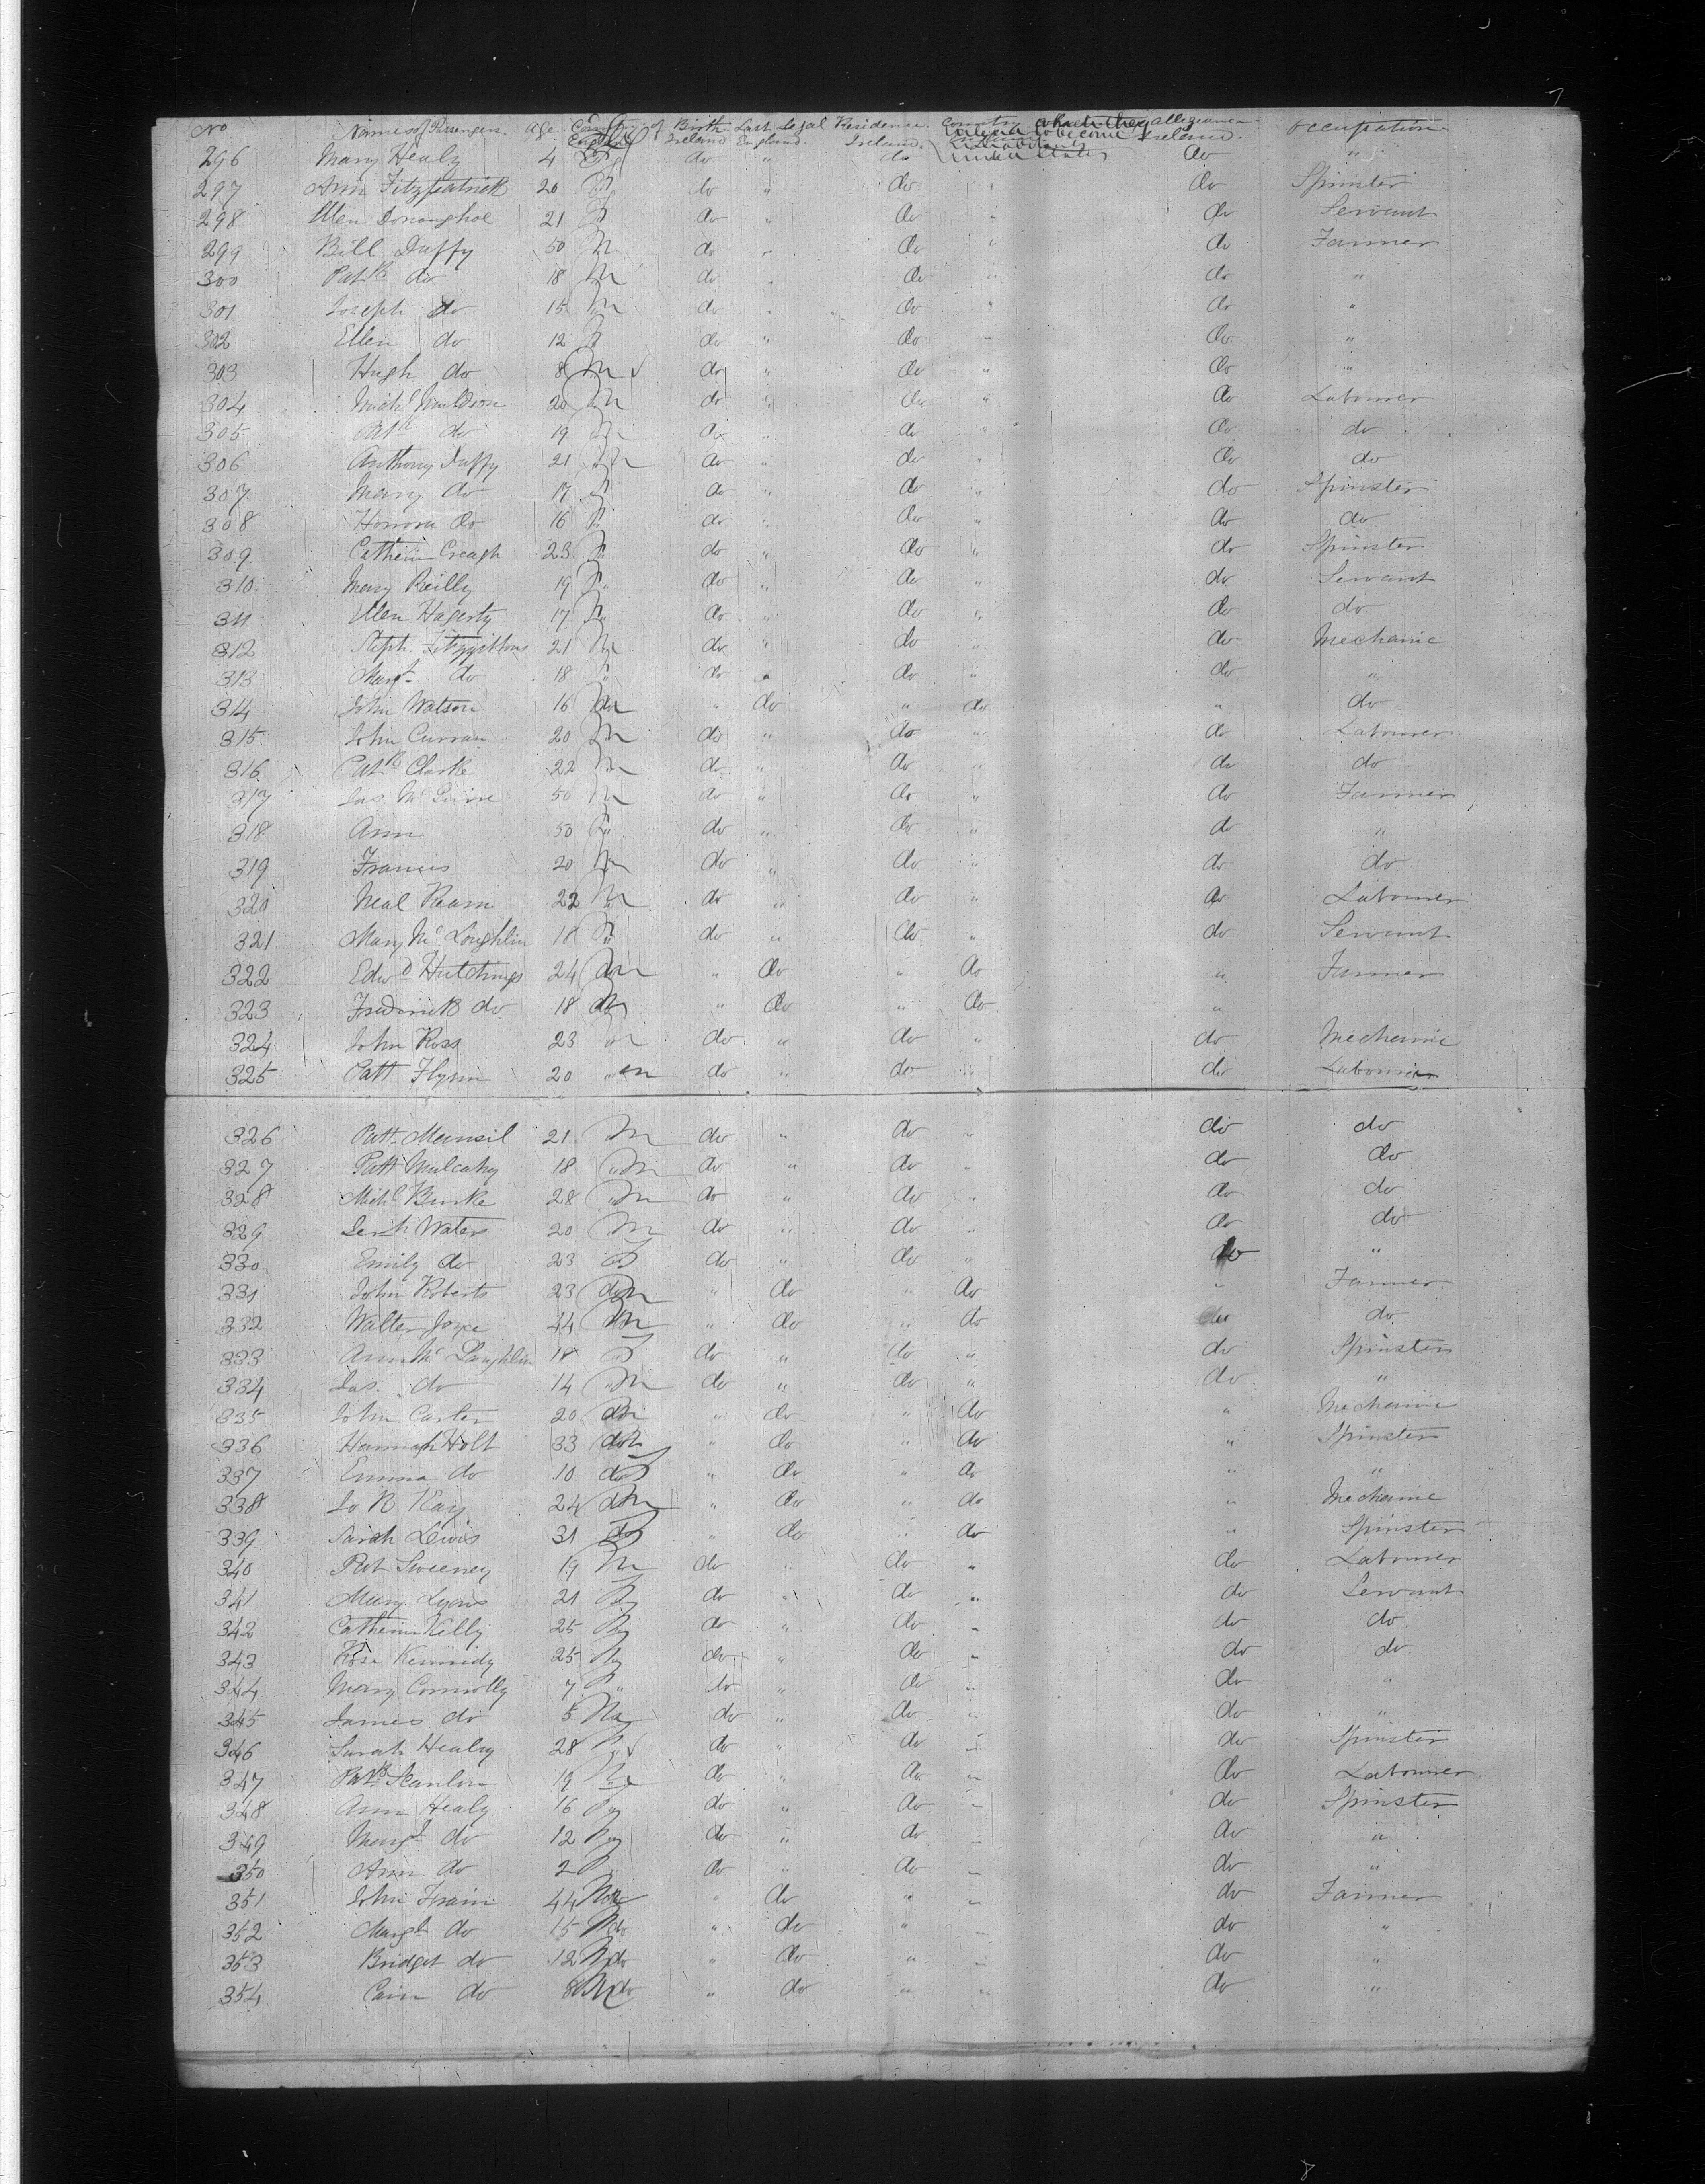 No Names of Passengers. Age Country of Birth. Last Legal Residence. Country allegiance Occupation
England Ireland England Ireland. intend to become inhabitants Ireland.
United States
296 Mary Healy 4 F do " do do "
297 Ann Fitzpatrick 20 F do " do " do Spinster
298 Ellen Donoughoe 21 F do " do " do Servant
299 Bill Duffy 50 M do " do " do Farmer
300 Patk do 18 M do " do " do "
301 Joseph do 15 M do " do " do "
302 Ellen do 12 F do " do " do "
303 Hugh do 8 M do " do " do "
304 Michl 20 M do " do " do Labourer
305 Patk do 19 M do " do " do do
306 Anthony Duffy 21 M do " do " do do
307 Mary do 17 F do " do " do Spinster
308 Honora do 16 F do " do " do do
309 Cathein Creagh 23 F do " do " do Spinster
310 Mary Reilly 19 F do " do " do Servant
311 Ellen Hagerty 17 F do " do " do do
312 Steph Fitzgibbons 21 M do " do " do Mechanic
313 Margt do 18 F do " do " do "
314 John Watson 16 do M " do " do " do
315 John Curran 20 M do " do " do Labourer
316 Patk Clarke 22 M do " do " do do
317 Jas Mc Guire 50 M do " do " do Farmer
318 Ann 50 F do " do " do "
319 Francis 20 M do " do " do do
320 Neal 22 M do " do " do Labourer
321 Mary Mc Loughlin 18 F do " do " do Servant
322 Edwd Hutchings 24 do M " do " do " Farmer
323 Fredrick do 18 do M " do " do "
324 John Ross 23 M do " do " do Mechanic
325 Patt Flynn 20 " M do " do " do Labourer
326 Patt Mansil 21 " M do " do " do do
327 Patt Mulcahy 18 " M do " do " do do
328 Michl Burke 28 " M do " do " do do
329 Waters 20 " M do " do " do do
330 Emily do 23 " F do " do " do "
331 John Roberts 23 do M " do " do " Farmer
332 Walter Joyce 44 do M " do " do do
333 Ann Mc Laughlin 18 " F do " do " do Spinster
334 Jas. do 14 " M do " do " do "
335 John Carter 20 do M " do " do " Mechanic
336 Hannah Holt 33 do F " do " do " Spinster
337 Emma do 10 do F " do " do " "
338 Jo R Kay 24 do M " do " do " Mechanic
339 Sarah Lewis 31 do F " do " do " Spinster
340 Pat Sweeney 19 M do " do " do Labourer
341 Mary Lyons 21 F do " do " do Servant
342 Cathein Kelly 25 F do " do " do do
343 Rose Kennedy 25 F do " do " do do
344 Mary Connolly 7 F " do " do " do "
345 James do 5 M do " do " do "
346 Sarah Healy 28 F do " do " do Spinster
347 Patk Scanlon 19 M do " do " do Labourer
348 Ann Healy 16 F do " do " do Spinster
349 Margt do 12 F do " do " do "
350 Ann do 2 F do " do " do "
351 John 44 M do " do " " do Farmer
352 Margt do 15 do " do " " do "
353 Bridget do 12 do " do " " do "
354 do 8 do " do " " do "